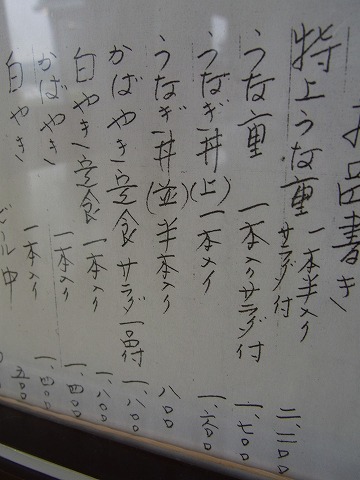 お品書き
特上うな重 一本半入り サラダ付 二、二〇〇
うな重 一本入り サラダ付 一、七〇〇
うなぎ丼(上) 一本入り 一、六〇〇
うなぎ丼(並) 半本入り 八〇〇
かばやき定食 サラダ一品付 一、八〇〇
白やき定食 一本入り 一、八〇〇
かばやき 一本入り 一、四〇〇
白やき 一本入り 一、四〇〇
ビール中 五〇〇